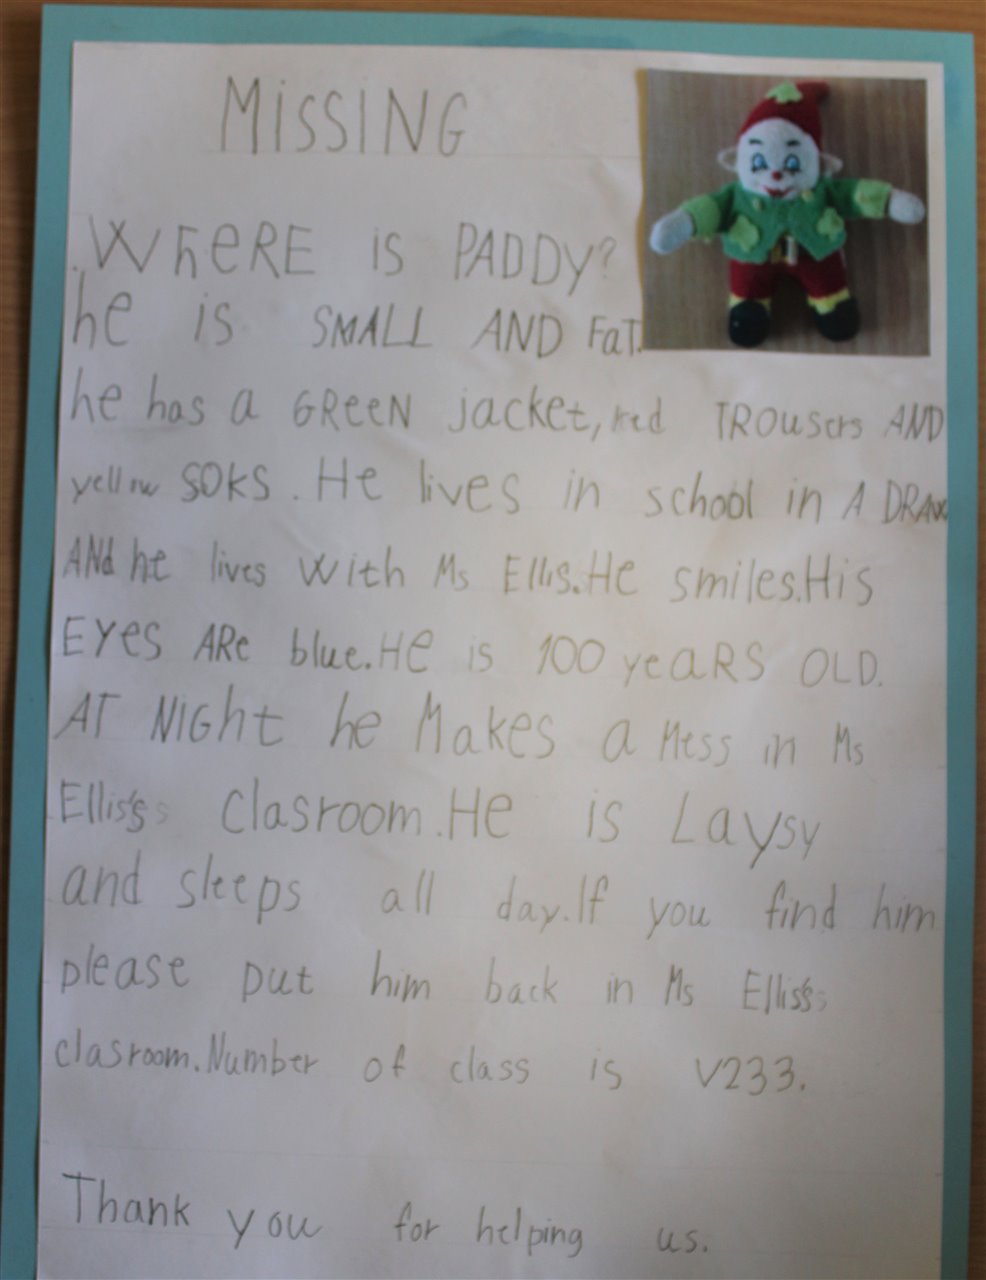 MiSSING
WhERE iS PADDY?
he is SMALL AND FaT.
he has a GReeN jacket, red TROUsers AND
yellow SOKS. He lives in school in A DRAW
ANd he lives with Ms Ellis. He smiles. His
EYES ARe blue. HE is 100 yeaRS OLD.
AT NiGht he Makes a Mess in Ms
Ellis's clasroom. He is Laysy
and sleeps all day. If you find him
please put him back in Ms Ellis's
clasroom. Number of class is V233.
Thank you for helping us.